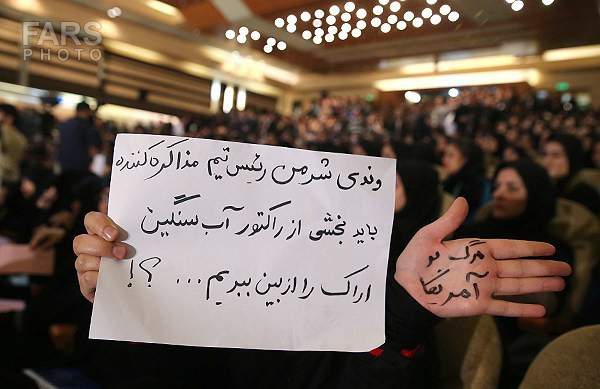 FARS
PHOTO
وندی شرمن رئیس تیم مذاکره کننده
باید بخشی از راکتور آب سنگین
اراک را از بین ببریم... ؟!
مرگ بر
آمریکا